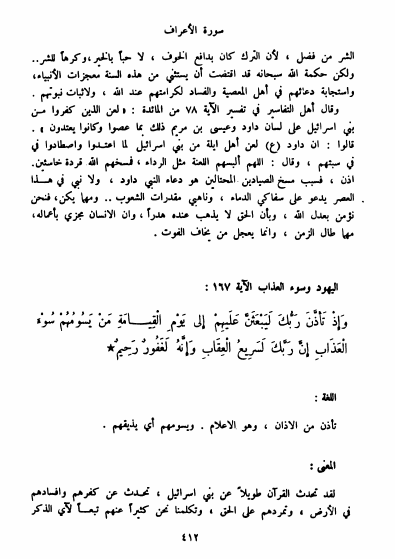 سورة الأعراف
الشر من فضل ، لأن الترك كان بدافع الخوف ، لا حباً بالخير ، وكرهاً للشر..
ولكن حكمة الله سبحانه قد اقتضت أن يستثني من هذه السنة معجزات الأنبياء،
واستجابة دعائهم في أهل المعصية والفساد لكرامتهم عند الله ، ولاثبات نبوتهم .
وقال أهل التفاسير في تفسير الآية ٧٨ من المائدة : « لعن الذين كفروا من
بني اسرائيل على لسان داود وعيسى بن مريم ذلك بما عصوا وكانوا يعتدون » .
قالوا : ان داود (ع) لعن أهل ايلة من بني اسرائيل لما اعتدوا واصطادوا في
سبتهم ، وقال : اللهم ألبسهم اللعنة مثل الرداء ، فمسخهم الله قردة خاسئين.
اذن ، فسبب مسخ الصيادين المحتالين هو دعاء النبي داود ، ولا نبي في هذا
العصر يدعو على سفاكي الدماء ، وناهبي مقدرات الشعوب .. ومهما يكن، فنحن
نؤمن بعدل الله ، وبأن الحق لا يذهب عنده هدراً ، وان الانسان مجزي بأعماله،
مهما طال الزمن ، وانما يعجل من يخاف الفوت .
اليهود وسوء العذاب الآية ١٦٧ :
وَإِذْ تَأَذَّنَ رَبُّكَ لَيَبْعَثَنَّ عَلَيْهِمْ إِلَى يَوْمِ الْقِيَامَةِ مَنْ يَسُومُهُمْ سُوءَ
الْعَذَابِ إِنَّ رَبَّكَ لَسَرِيعُ الْعِقَابِ وَإِنَّهُ لَغَفُورٌ رَحِيمٌ *
اللغة :
تأذن من الاذان ، وهو الاعلام . ويسومهم أي يذيقهم .
المعنى :
لقد تحدث القرآن طويلاً عن بني اسرائيل ، تحدث عن كفرهم وافسادهم
في الأرض ، وتمردهم على الحق ، وتكلمنا نحن كثيراً عنهم تبعاً لآي الذكر
٤١٢